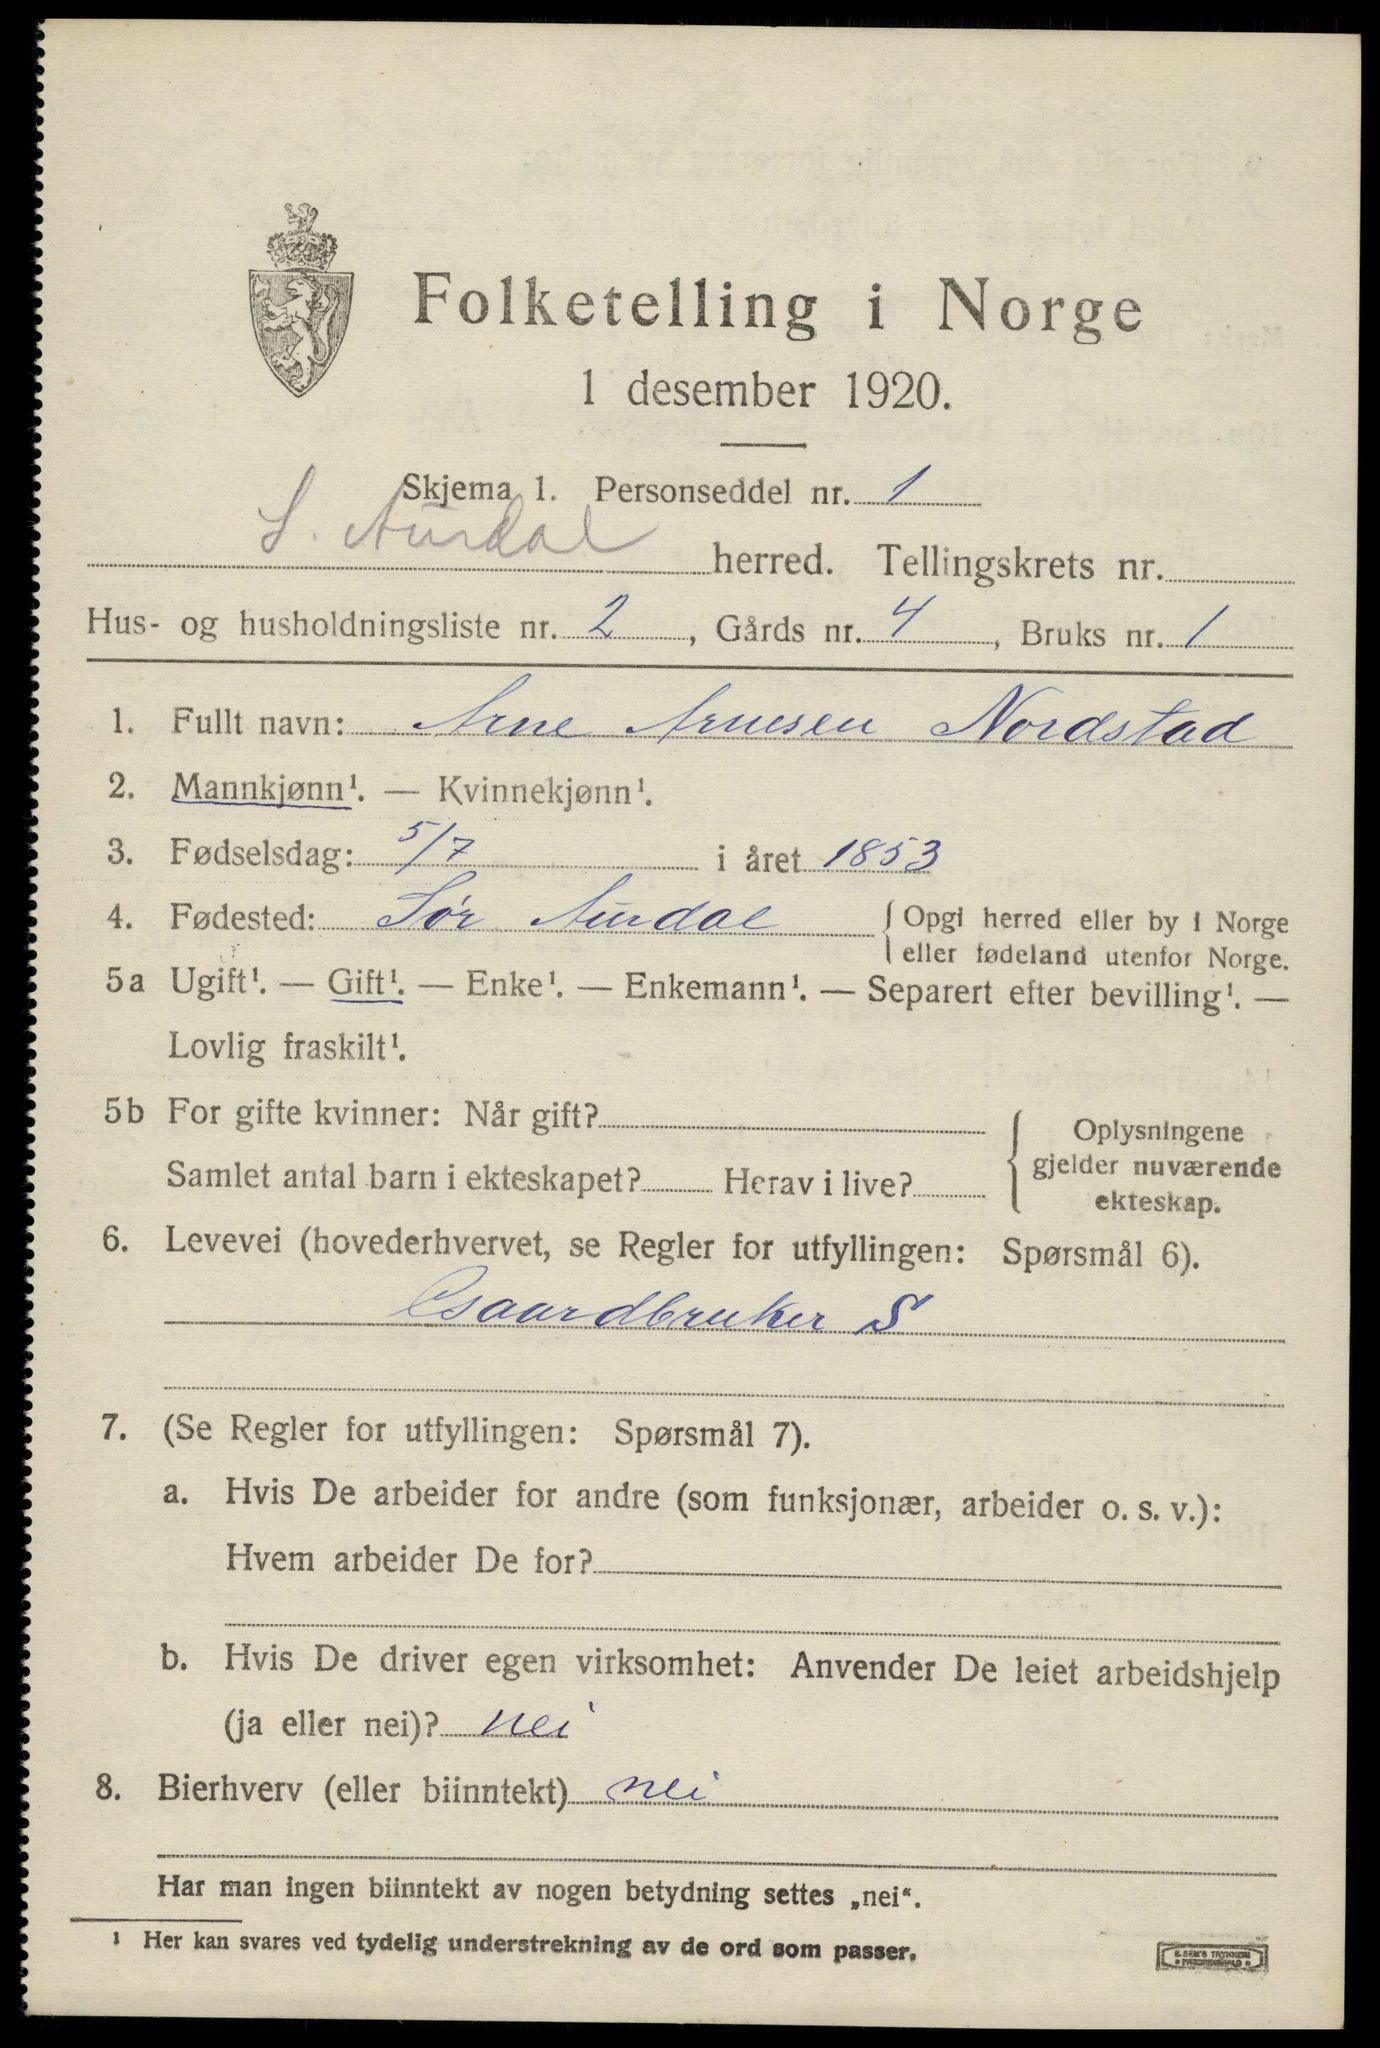 Folketelling i Norge
1 desember 1920.
Skjema 1. Personseddel nr. 1
S. Aurdal herred. Tellingskrets nr.
Hus- og husholdningsliste nr. 2, Gårds nr. 4, Bruks nr. 1
1. Fullt navn: Arne Arnesen Nordstad
2. Mannkjønn¹. — Kvinnekjønn¹.
3. Fødselsdag: 5/7 i året 1853
4. Fødested: Sør Aurdal { Opgi herred eller by i Norge
eller fødeland utenfor Norge.
5a Ugift¹. — Gift¹. — Enke¹. — Enkemann¹. — Separert efter bevilling¹. —
Lovlig fraskilt¹.
5b For gifte kvinner: Når gift?
Samlet antal barn i ekteskapet? Herav i live?
{ Oplysningene
gjelder nuværende
ekteskap.
6. Levevei (hovederhvervet, se Regler for utfyllingen: Spørsmål 6).
Gaardbruker S
7. (Se Regler for utfyllingen: Spørsmål 7).
a. Hvis De arbeider for andre (som funksjonær, arbeider o. s. v.):
Hvem arbeider De for?
b. Hvis De driver egen virksomhet: Anvender De leiet arbeidshjelp
(ja eller nei)? nei
8. Bierhverv (eller biinntekt) nei
Har man ingen biinntekt av nogen betydning settes „nei“.
¹ Her kan svares ved tydelig understrekning av de ord som passer.